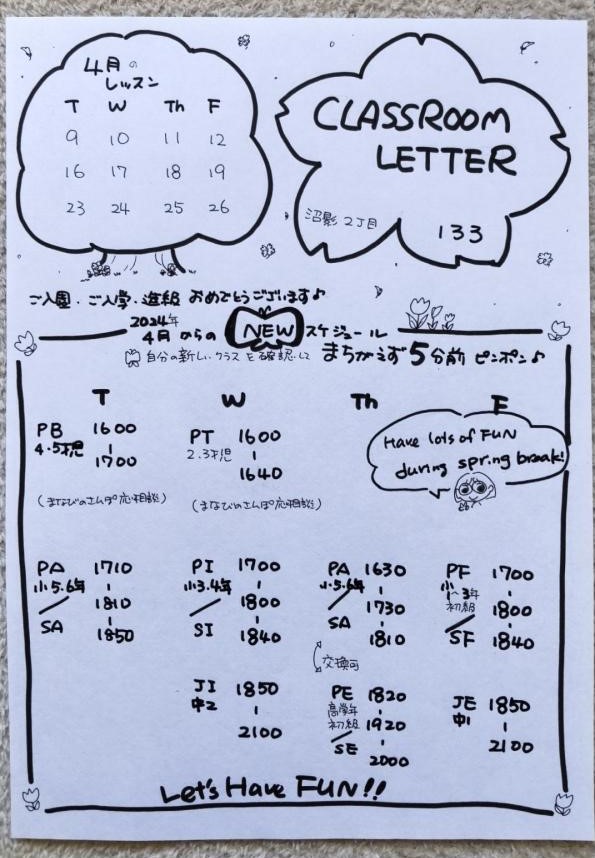 4月の
レッスン
T W Th F
9 10 11 12
16 17 18 19
23 24 25 26
CLASSROOM
LETTER
沼影2丁目
133
ご入園・ご入学・進級 おめでとうございます♪
2024年
4月 からの NEW スケジュール
自分の新しいクラスを確認して まちがえず 5分前 ピンポン♪
T W Th F
Have lots of FUN
during spring break!
PB 1600
4.5才児
-
1700
(まなびのさんぽ応相談)
PT 1600
2.3才児
-
1640
(まなびのさんぽ応相談)
PA 1710
小5.6年
-
1810
-
SA 1850
PI 1700
小3.4年
-
1800
-
SI 1840
PA 1630
小5.6年
-
1730
-
SA 1810
交換可
PF 1700
小1~3年
初級
-
1800
-
SF 1840
JI 1850
中2
-
2100
PE 1820
高学年
初級
-
1920
-
SE 2000
JE 1850
中1
-
2100
Let's Have FUN!!